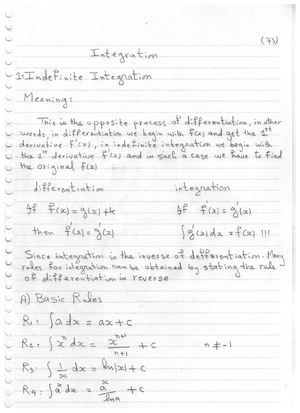 (73)
Integration
1. Indefinite Integration
Meaning:
This is the opposite process of differentiation, in other
words, in differentiation we begin with f(x) and get the 1st
derivative f'(x), in indefinite integration we begin with
the 1st derivative f'(x) and in such a case we have to find
the original f(x)
differentiation integration
If f(x) = g(x) + k If f'(x) = g'(x)
then f'(x) = g'(x) ∫g'(x) dx = f(x) !!!
Since integration is the inverse of differentiation. Many
rules for integration can be obtained by stating the rule
of differentiation in reverse
A) Basic Rules
R1: ∫a dx = ax + c
R2: ∫xⁿ dx = xⁿ⁺¹/n+1 + c n ≠ -1
R3: ∫1/x dx = ln|x| + c
R4: ∫aˣ dx = aˣ/lna + c